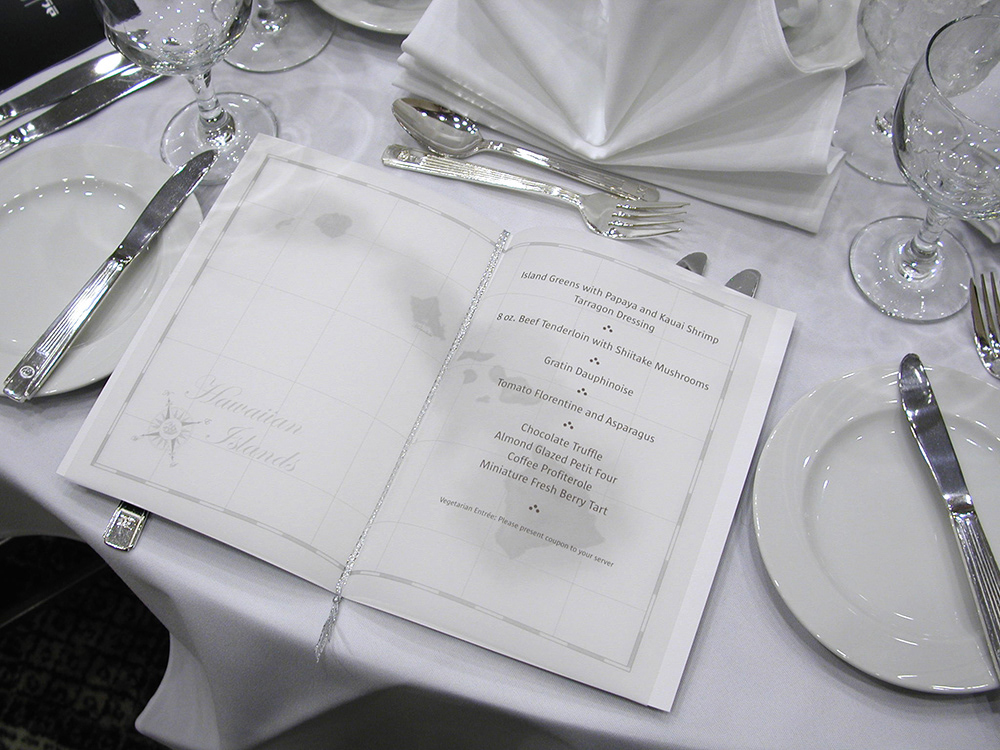 Hawaiian
Islands
Island Greens with Papaya and Kauai Shrimp
Tarragon Dressing
8 oz. Beef Tenderloin with Shiitake Mushrooms
Gratin Dauphinoise
Tomato Florentine and Asparagus
Chocolate Truffle
Almond Glazed Petit Four
Coffee Profiterole
Miniature Fresh Berry Tart
Vegetarian Entrée: Please present coupon to your server